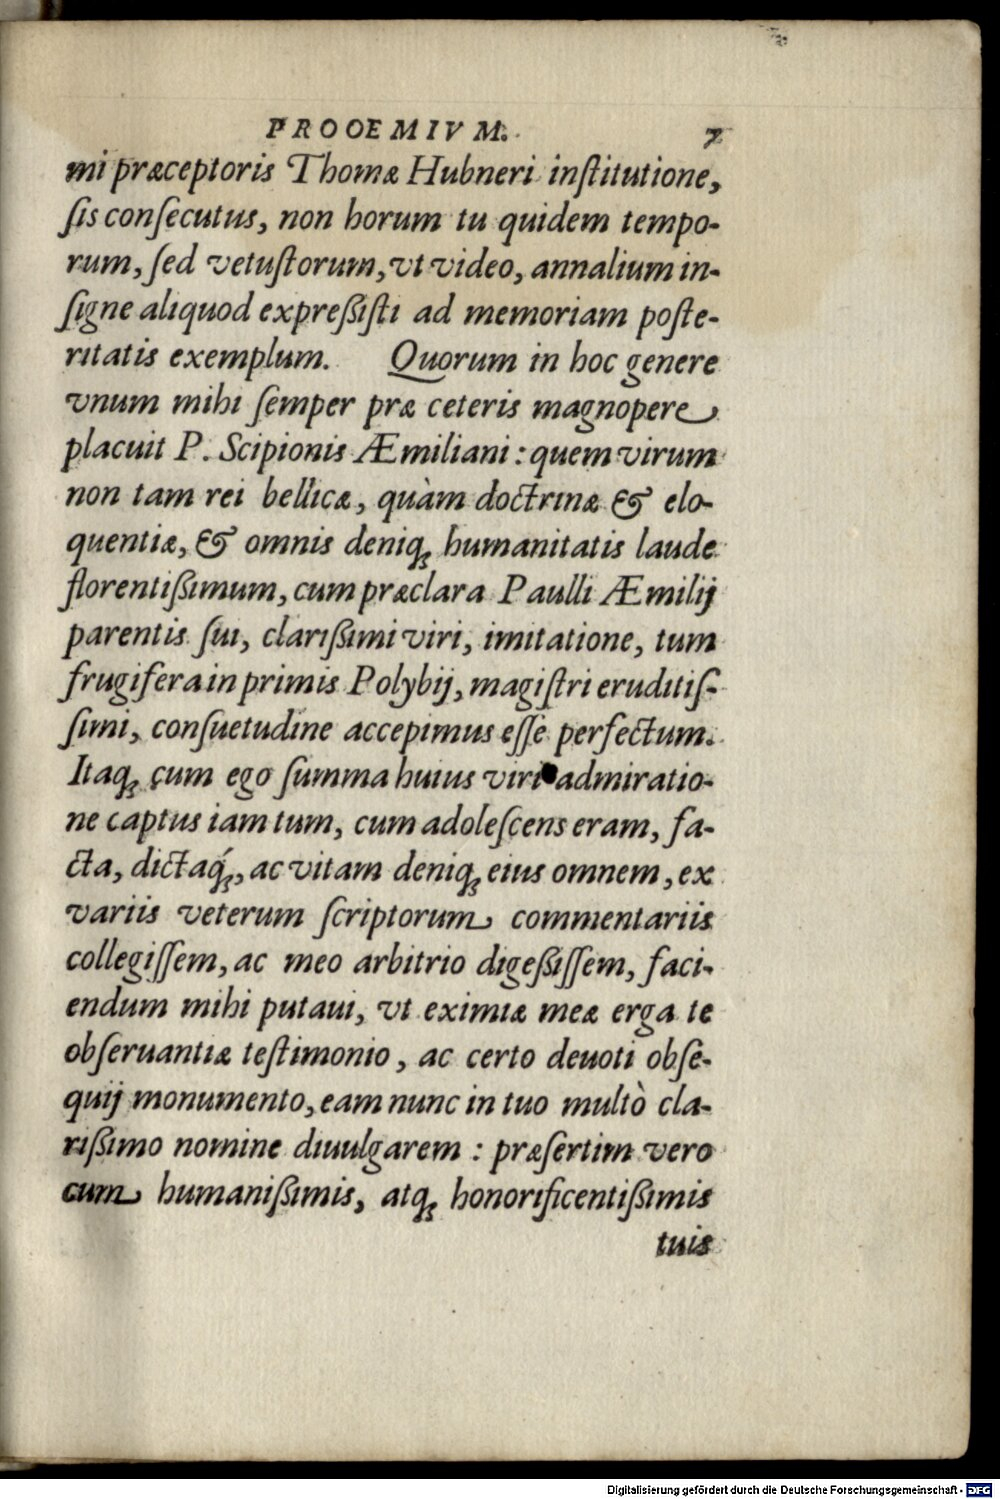 PROOEMIVM. 7
mi præceptoris Thomæ Hubneri inſtitutione,
ſis conſecutus, non horum tu quidem tempo-
rum, ſed vetuſtorum, vt video, annalium in-
ſigne aliquod expreßiſti ad memoriam poſte-
ritatis exemplum. Quorum in hoc genere
vnum mihi ſemper præ ceteris magnopere
placuit P. Scipionis Æmiliani : quem virum
non tam rei bellicæ, quàm doctrinæ & elo-
quentiæ, & omnis deniq; humanitatis laude
florentißimum, cum præclara Paulli Æmilij
parentis ſui, clarißimi viri, imitatione, tum
frugifera in primis Polybij, magiſtri eruditiſ-
ſimi, conſuetudine accepimus eſſe perfectum.
Itaq; cum ego ſumma huius viri admiratio-
ne captus iam tum, cum adoleſcens eram, fa-
cta, dictaq́;, ac vitam deniq; eius omnem, ex
variis veterum ſcriptorum commentariis
collegiſſem, ac meo arbitrio digeßiſſem, faci-
endum mihi putaui, vt eximiæ meæ erga te
obſeruantiæ teſtimonio, ac certo deuoti obſe-
quij monumento, eam nunc in tuo multò cla-
rißimo nomine diuulgarem : præſertim vero
cum humanißimis, atq; honorificentißimis
tuis
Digitalisierung gefördert durch die Deutsche Forschungsgemeinschaft - DFG